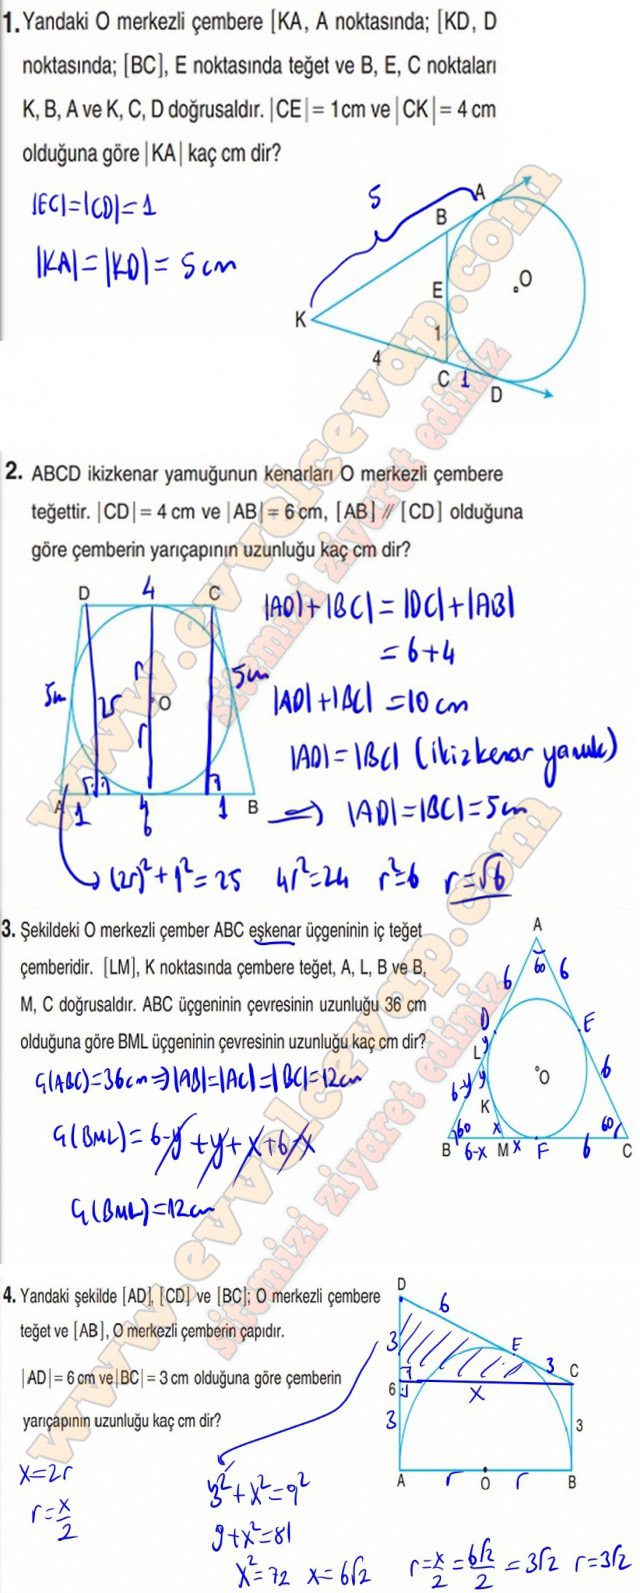 1. Yandaki O merkezli çembere [KA, A noktasında; [KD, D
noktasında; [BC], E noktasında teğet ve B, E, C noktaları
K, B, A ve K, C, D doğrusaldır. |CE| = 1cm ve |CK| = 4 cm
olduğuna göre |KA| kaç cm dir?
|EC|=|CD|=1
|KA|=|KD|= 5cm
5
A
B
E
O
K
1
4
C 1
D
2. ABCD ikizkenar yamuğunun kenarları O merkezli çembere
teğettir. |CD| = 4 cm ve |AB| = 6 cm, [AB] // [CD] olduğuna
göre çemberin yarıçapının uzunluğu kaç cm dir?
D 4 C
|AD|+|BC|=|DC|+|AB|
= 6+4
|AD|+|BC| = 10 cm
|AD|=|BC| (ikizkenar yamuk)
=> |AD|=|BC|=5cm
5cm 2r r O r 5cm
A 1 6 1 B
(2r)²+1²=25 4r²=24 r²=6 r=√6
3. Şekildeki O merkezli çember ABC eşkenar üçgeninin iç teğet
çemberidir. [LM], K noktasında çembere teğet, A, L, B ve B,
M, C doğrusaldır. ABC üçgeninin çevresinin uzunluğu 36 cm
olduğuna göre BML üçgeninin çevresinin uzunluğu kaç cm dir?
Ç(ABC)=36cm=>|AB|=|AC|=|BC|=12cm
Ç(BML)=6-y+y+x+6-x
Ç(BML)=12cm
A
6 60 6
D E
L y
O
6-y y 6
K
60 x 60
B 6-x M x F 6 C
4. Yandaki şekilde [AD], [CD] ve [BC]; O merkezli çembere
teğet ve [AB], O merkezli çemberin çapıdır.
|AD| = 6 cm ve |BC| = 3 cm olduğuna göre çemberin
yarıçapının uzunluğu kaç cm dir?
D
6
3 E
3 C
6 x
3 3
A r O r B
x=2r
r=x/2
3²+x²=9²
9+x²=81
x²=72 x=6√2
r=x/2=6√2/2=3√2 r=3√2
www.evvelcevap.com
sitemizi ziyaret ediniz
www.evvelcevap.com
sitemizi ziyaret ediniz